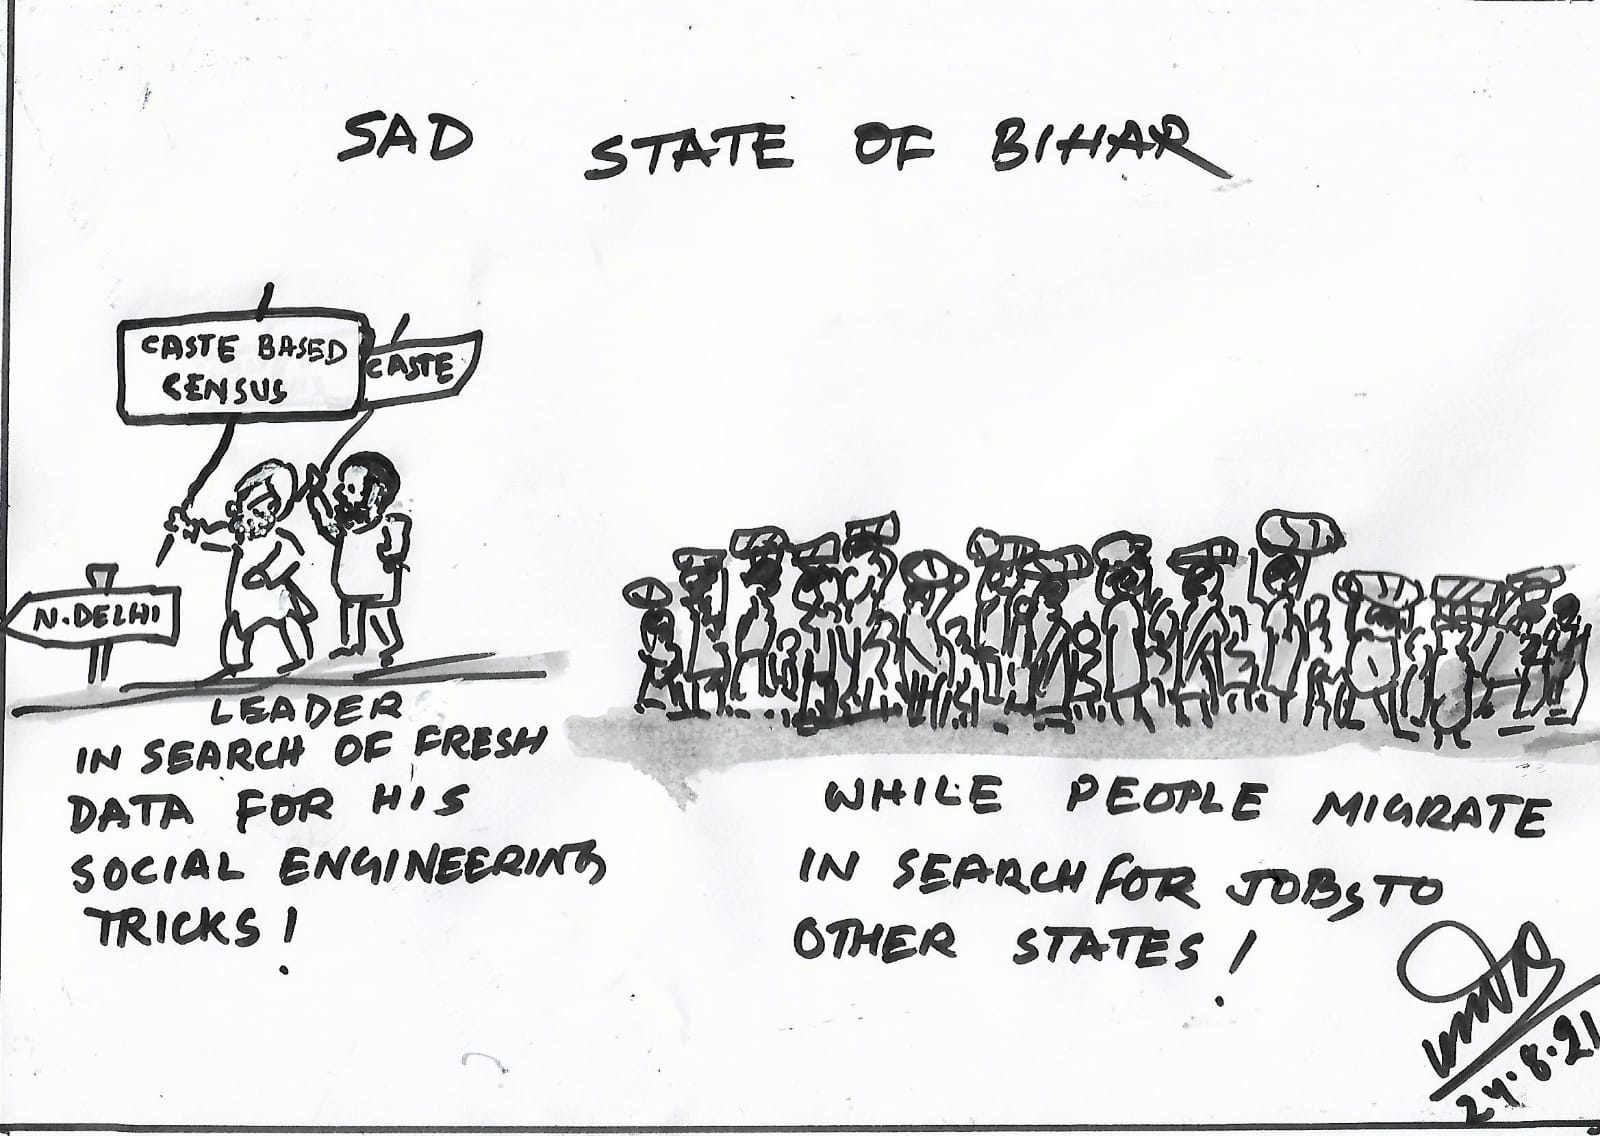 SAD STATE OF BIHAR
CASTE BASED
CENSUS
CASTE
N. DELHI
LEADER
IN SEARCH OF FRESH
DATA FOR HIS
SOCIAL ENGINEERING
TRICKS!
WHILE PEOPLE MIGRATE
IN SEARCH FOR JOBS TO
OTHER STATES!
24.8.21